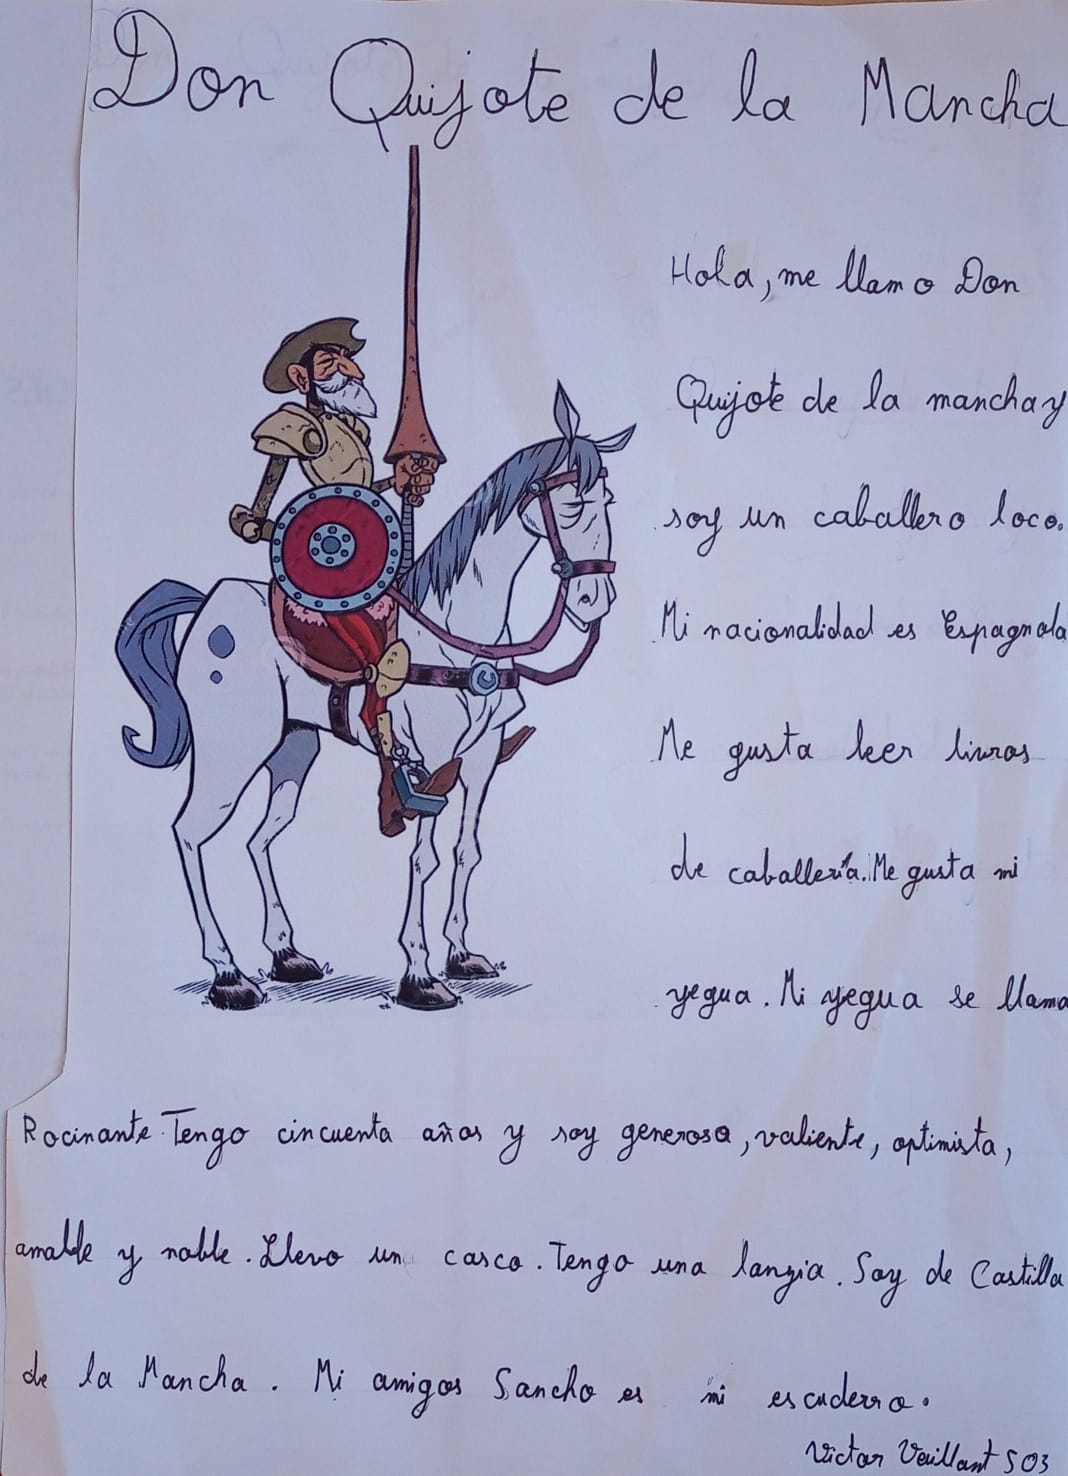 Don Quijote de la Mancha
Hola, me llamo Don
Quijote de la mancha y
soy un caballero loco.
Mi nacionalidad es Espagnola
Me gusta leer livros
de caballería. Me gusta mi
yegua. Mi yegua se llama
Rocinante. Tengo cincuenta años y soy generoso, valiente, optimista,
amable y noble. Llevo un casco. Tengo una lanzia. Soy de Castilla
de la Mancha. Mi amigos Sancho es mi escuderro.
Victor Vaillant 503